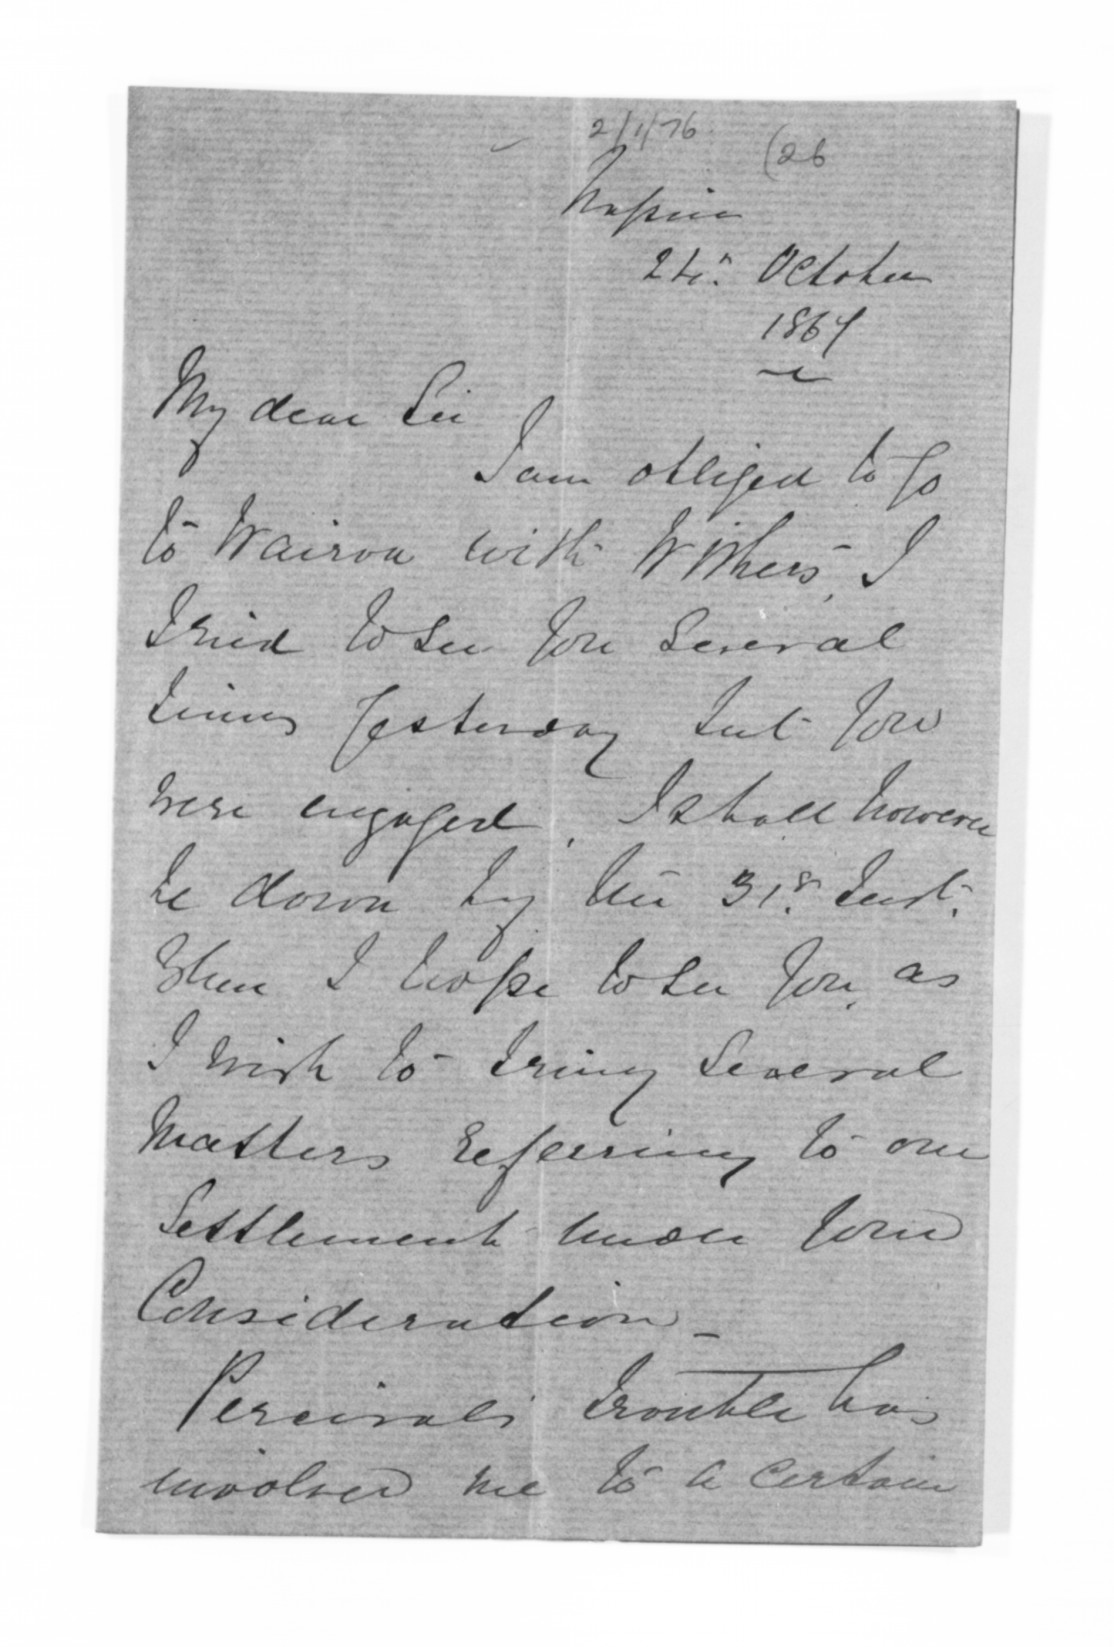 2/1/76
(26
Napier
24th October
1867
My dear Sir
I am obliged to go
to Wairoa with Withers, I
tried to see you several
times yesterday but you
were engaged. I shall however
be down by the 31st Inst.
when I hope to see you, as
I wish to bring several
matters referring to our
Settlement under your
Consideration _
Percivals trouble has
involved me to a certain